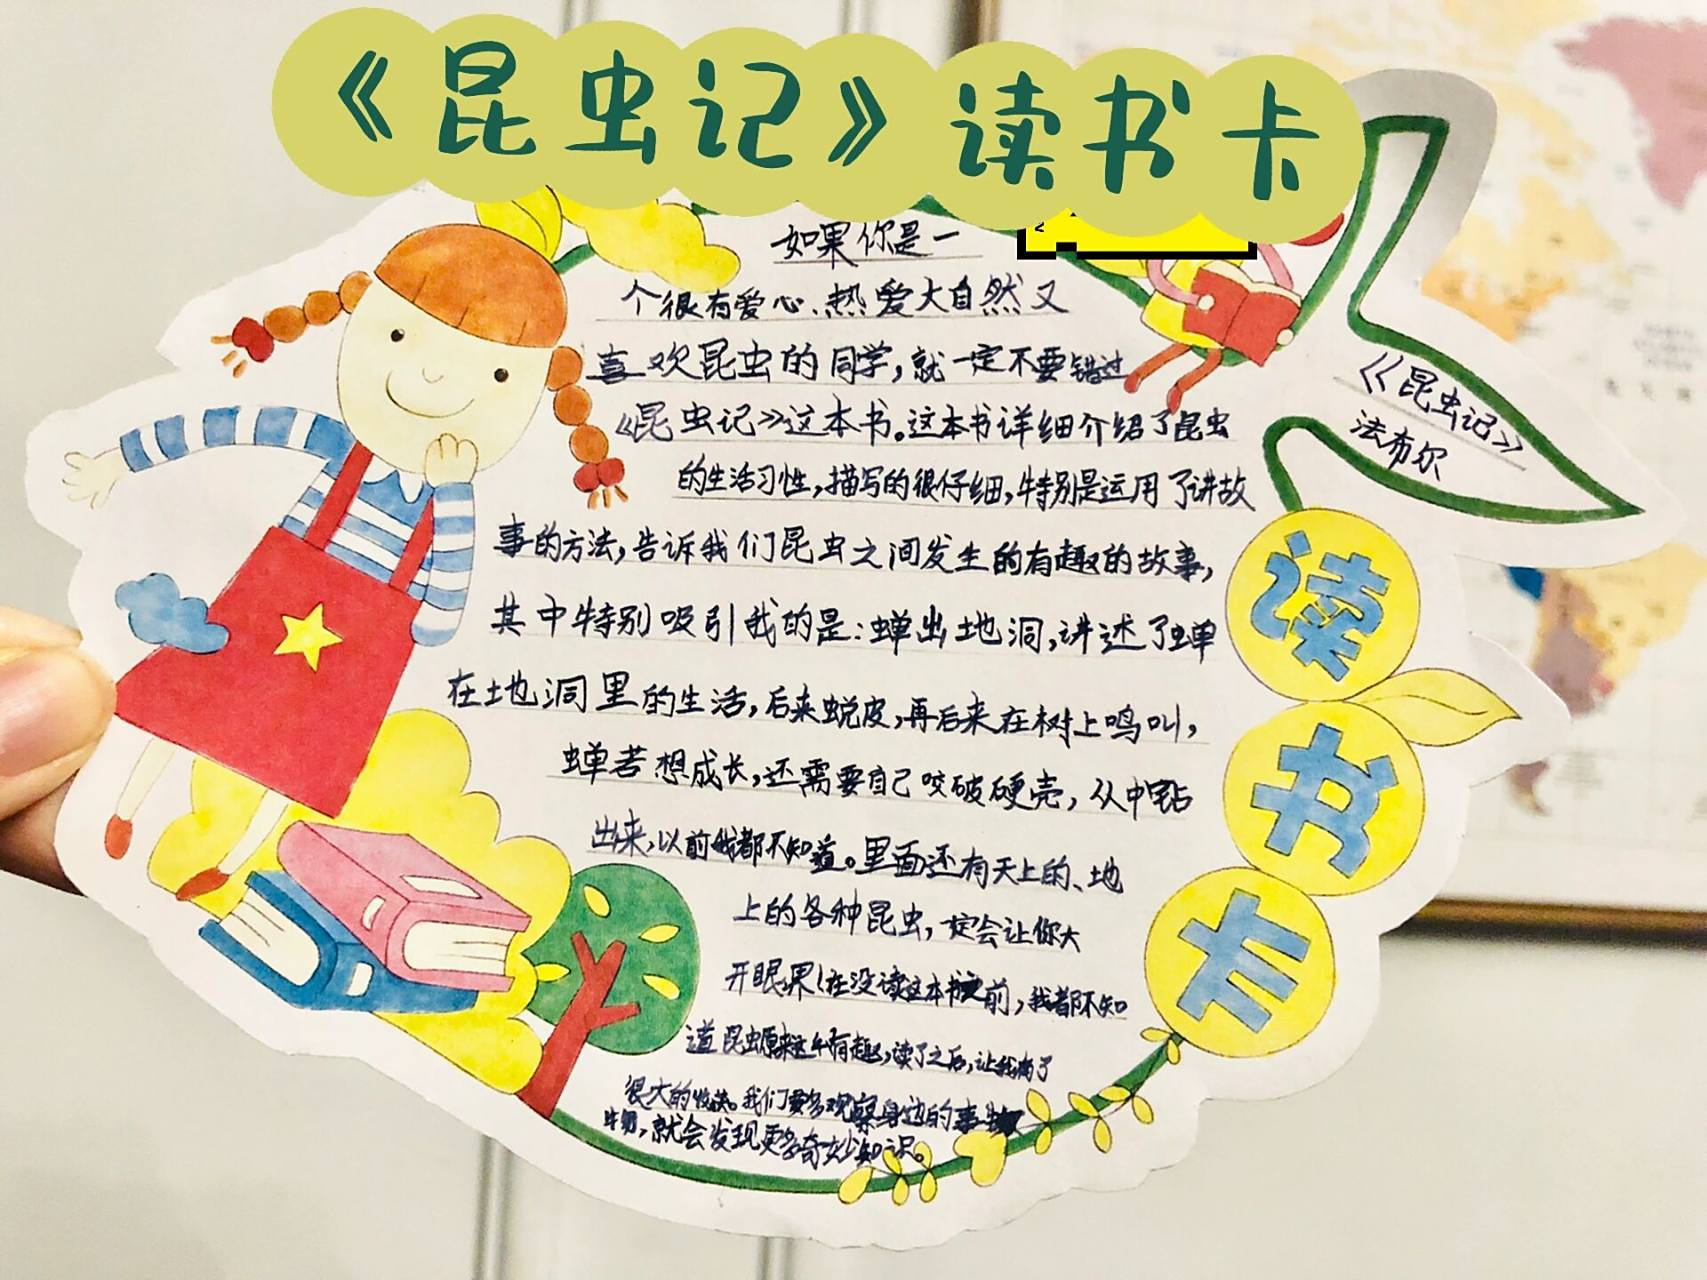 《昆虫记》读书卡
如果你是一
个很有爱心、热爱大自然又
喜欢昆虫的同学，就一定不要错过
《昆虫记》这本书。这本书详细介绍了昆虫
的生活习性，描写的很仔细，特别是运用了讲故
事的方法，告诉我们昆虫之间发生的有趣的故事，
其中特别吸引我的是：蝉出地洞，讲述了蝉
在地洞里的生活，后来蜕皮，再后来在树上鸣叫，
蝉若想成长，还需要自己咬破硬壳，从中钻
出来，以前我都不知道。里面还有天上的、地
上的各种昆虫，一定会让你大
开眼界！在没读这本书之前，我都不知
道昆虫原来这么有趣，读了之后，让我有了
很大的收获。我们要多观察身边的事物
，就会发现更多奇妙知识。
《昆虫记》
法布尔
读
书
卡